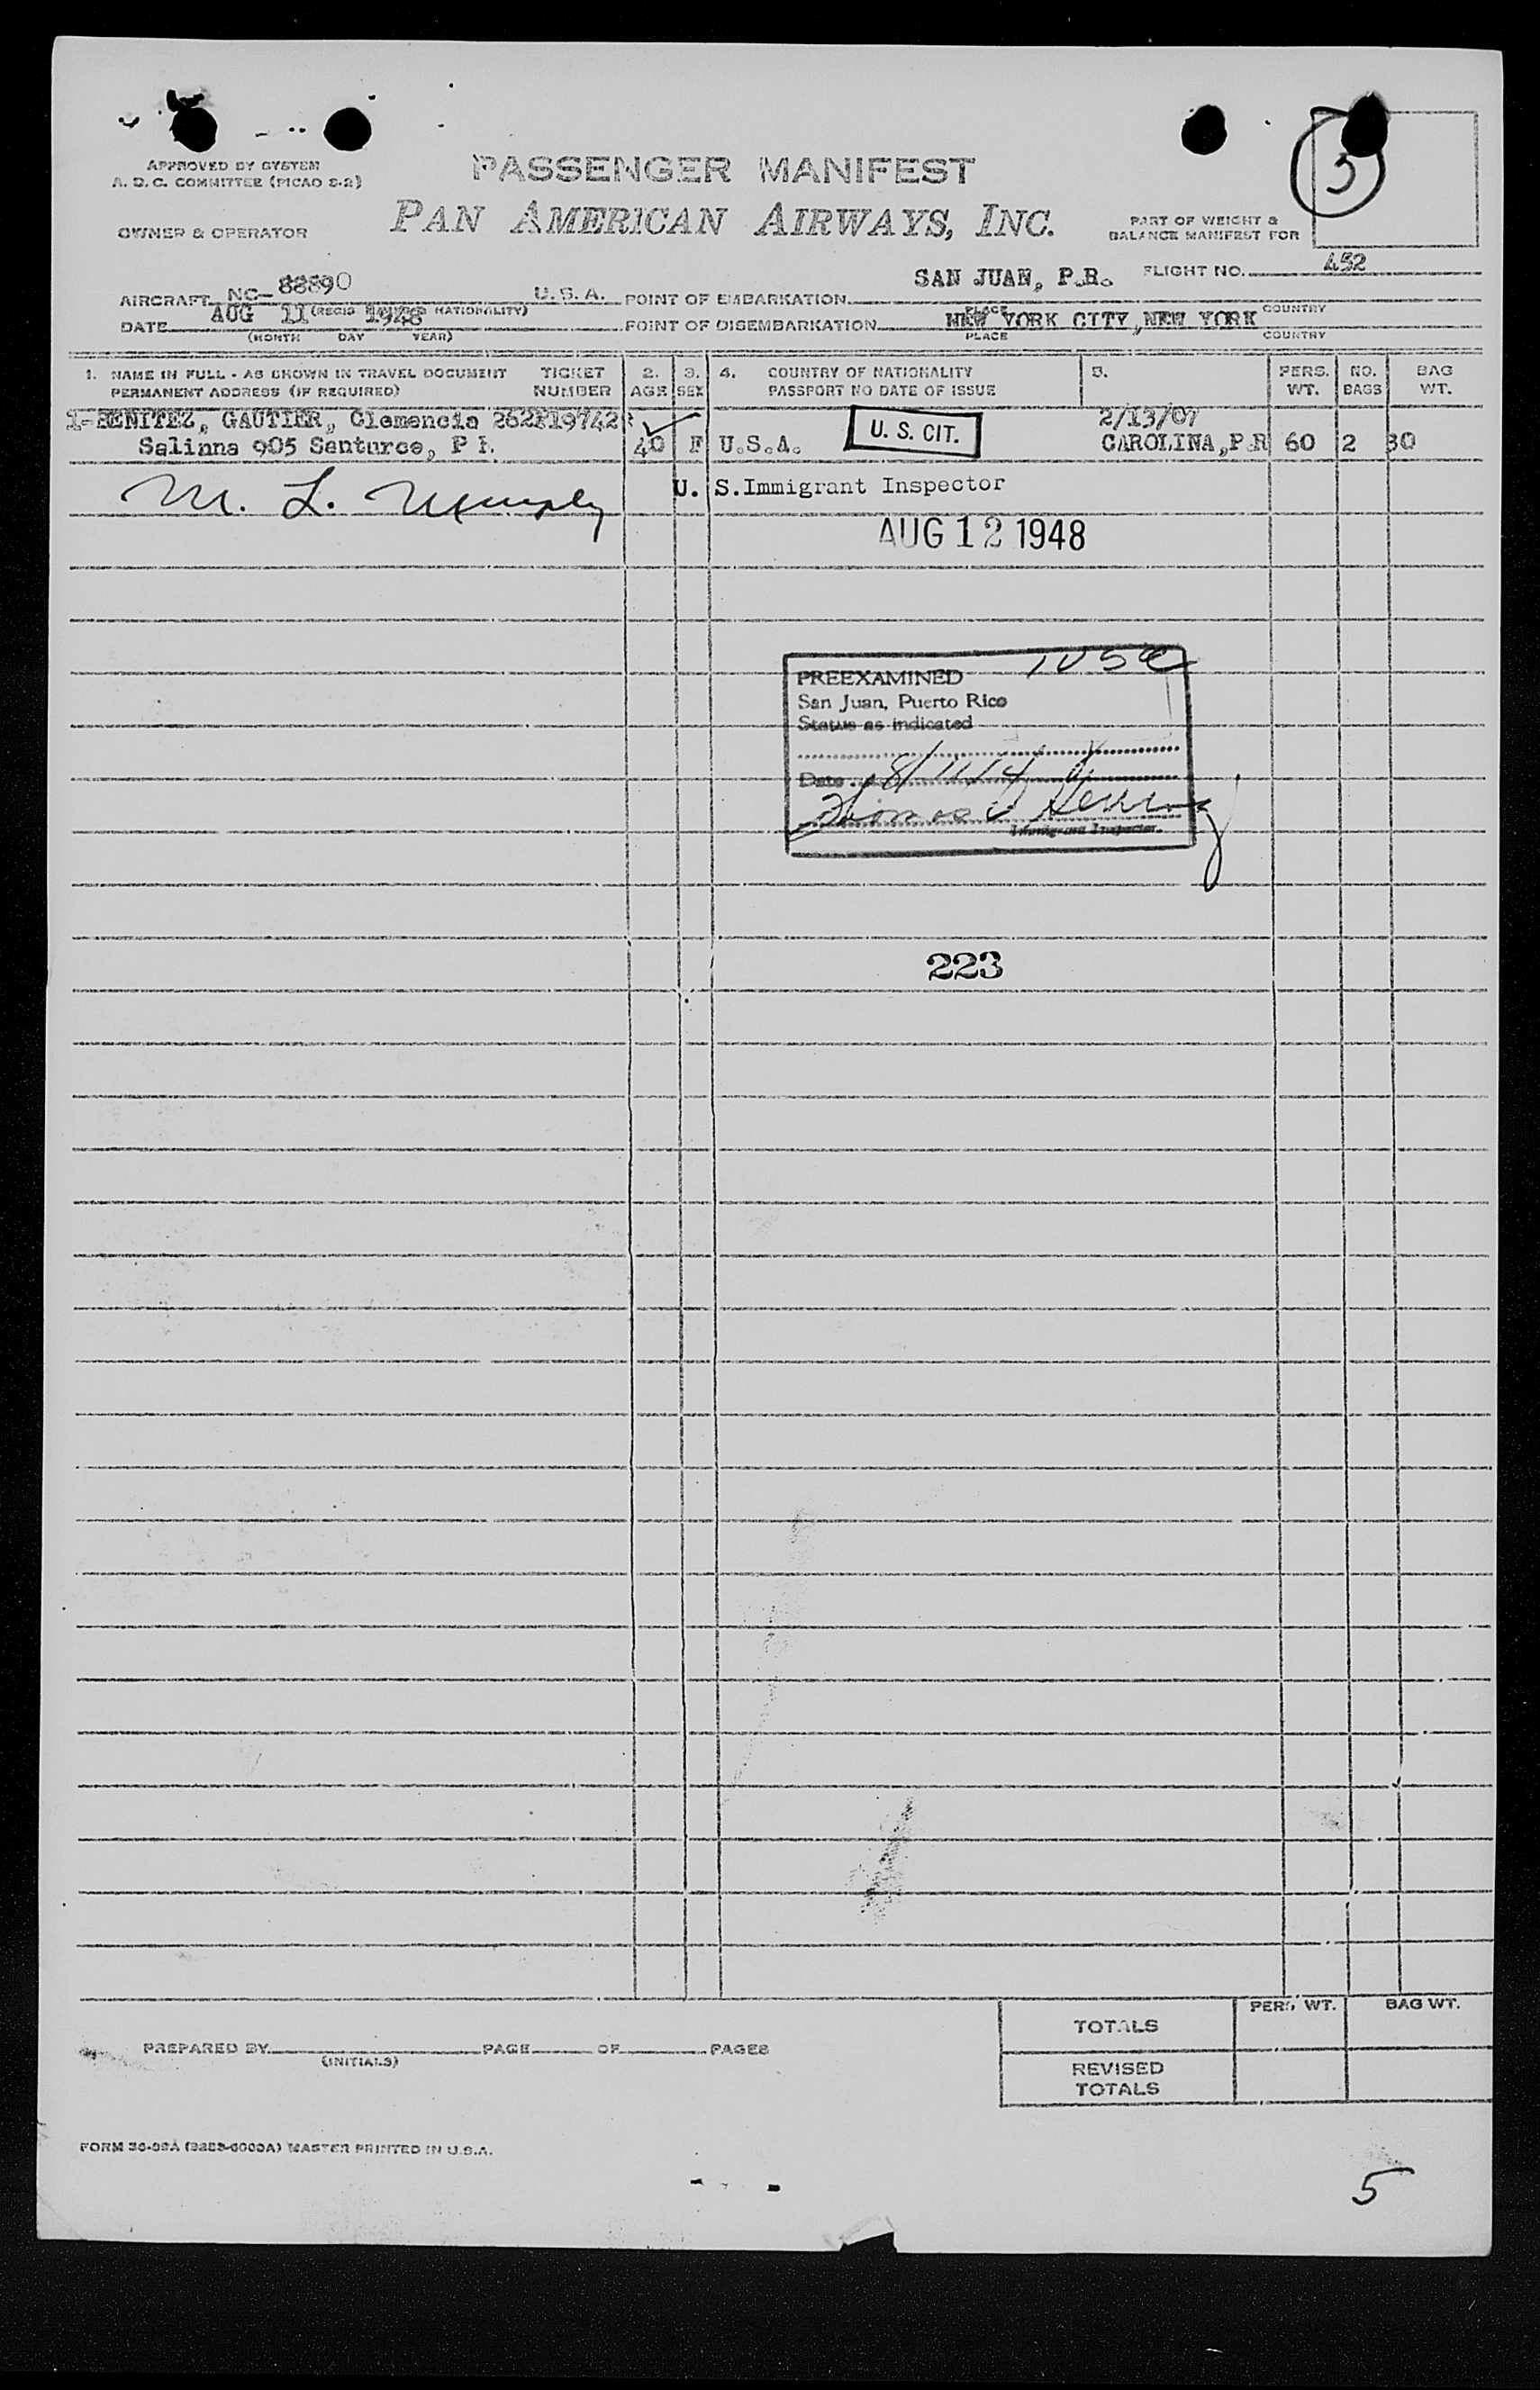 5
APPROVED BY SYSTEM
A. D. C. COMMITTEE (PICAO S-2)
PASSENGER MANIFEST
OWNER & OPERATOR
PAN AMERICAN AIRWAYS, INC.
PART OF WEIGHT &
BALANCE MANIFEST FOR
FLIGHT NO. 452
AIRCRAFT NC-88890 U. S. A. POINT OF EMBARKATION SAN JUAN, P.R.
PLACE COUNTRY
DATE AUG 11 1948 POINT OF DISEMBARKATION NEW YORK CITY, NEW YORK
(MONTH DAY YEAR) PLACE COUNTRY
1. NAME IN FULL - AS SHOWN IN TRAVEL DOCUMENT TICKET 2. 3. 4. COUNTRY OF NATIONALITY 5. PERS. NO. BAG
PERMANENT ADDRESS (IF REQUIRED) NUMBER AGE SEX PASSPORT NO DATE OF ISSUE WT. BAGS WT.
1-BENITEZ, GAUTIER, Clemencia 2/13/07
Salinna 905 Santurce, P R. 40 F U.S.A. U. S. CIT. CAROLINA,P.R 60 2 30
M. L. U. S.Immigrant Inspector
AUG 12 1948
PREEXAMINED
San Juan, Puerto Rico
Status as indicated
Date
Immigrant Inspector.
223
PERS WT. BAG WT.
TOTALS
PREPARED BY PAGE OF PAGES
(INITIALS)
REVISED
TOTALS
MASTER PRINTED IN U.S.A.
5